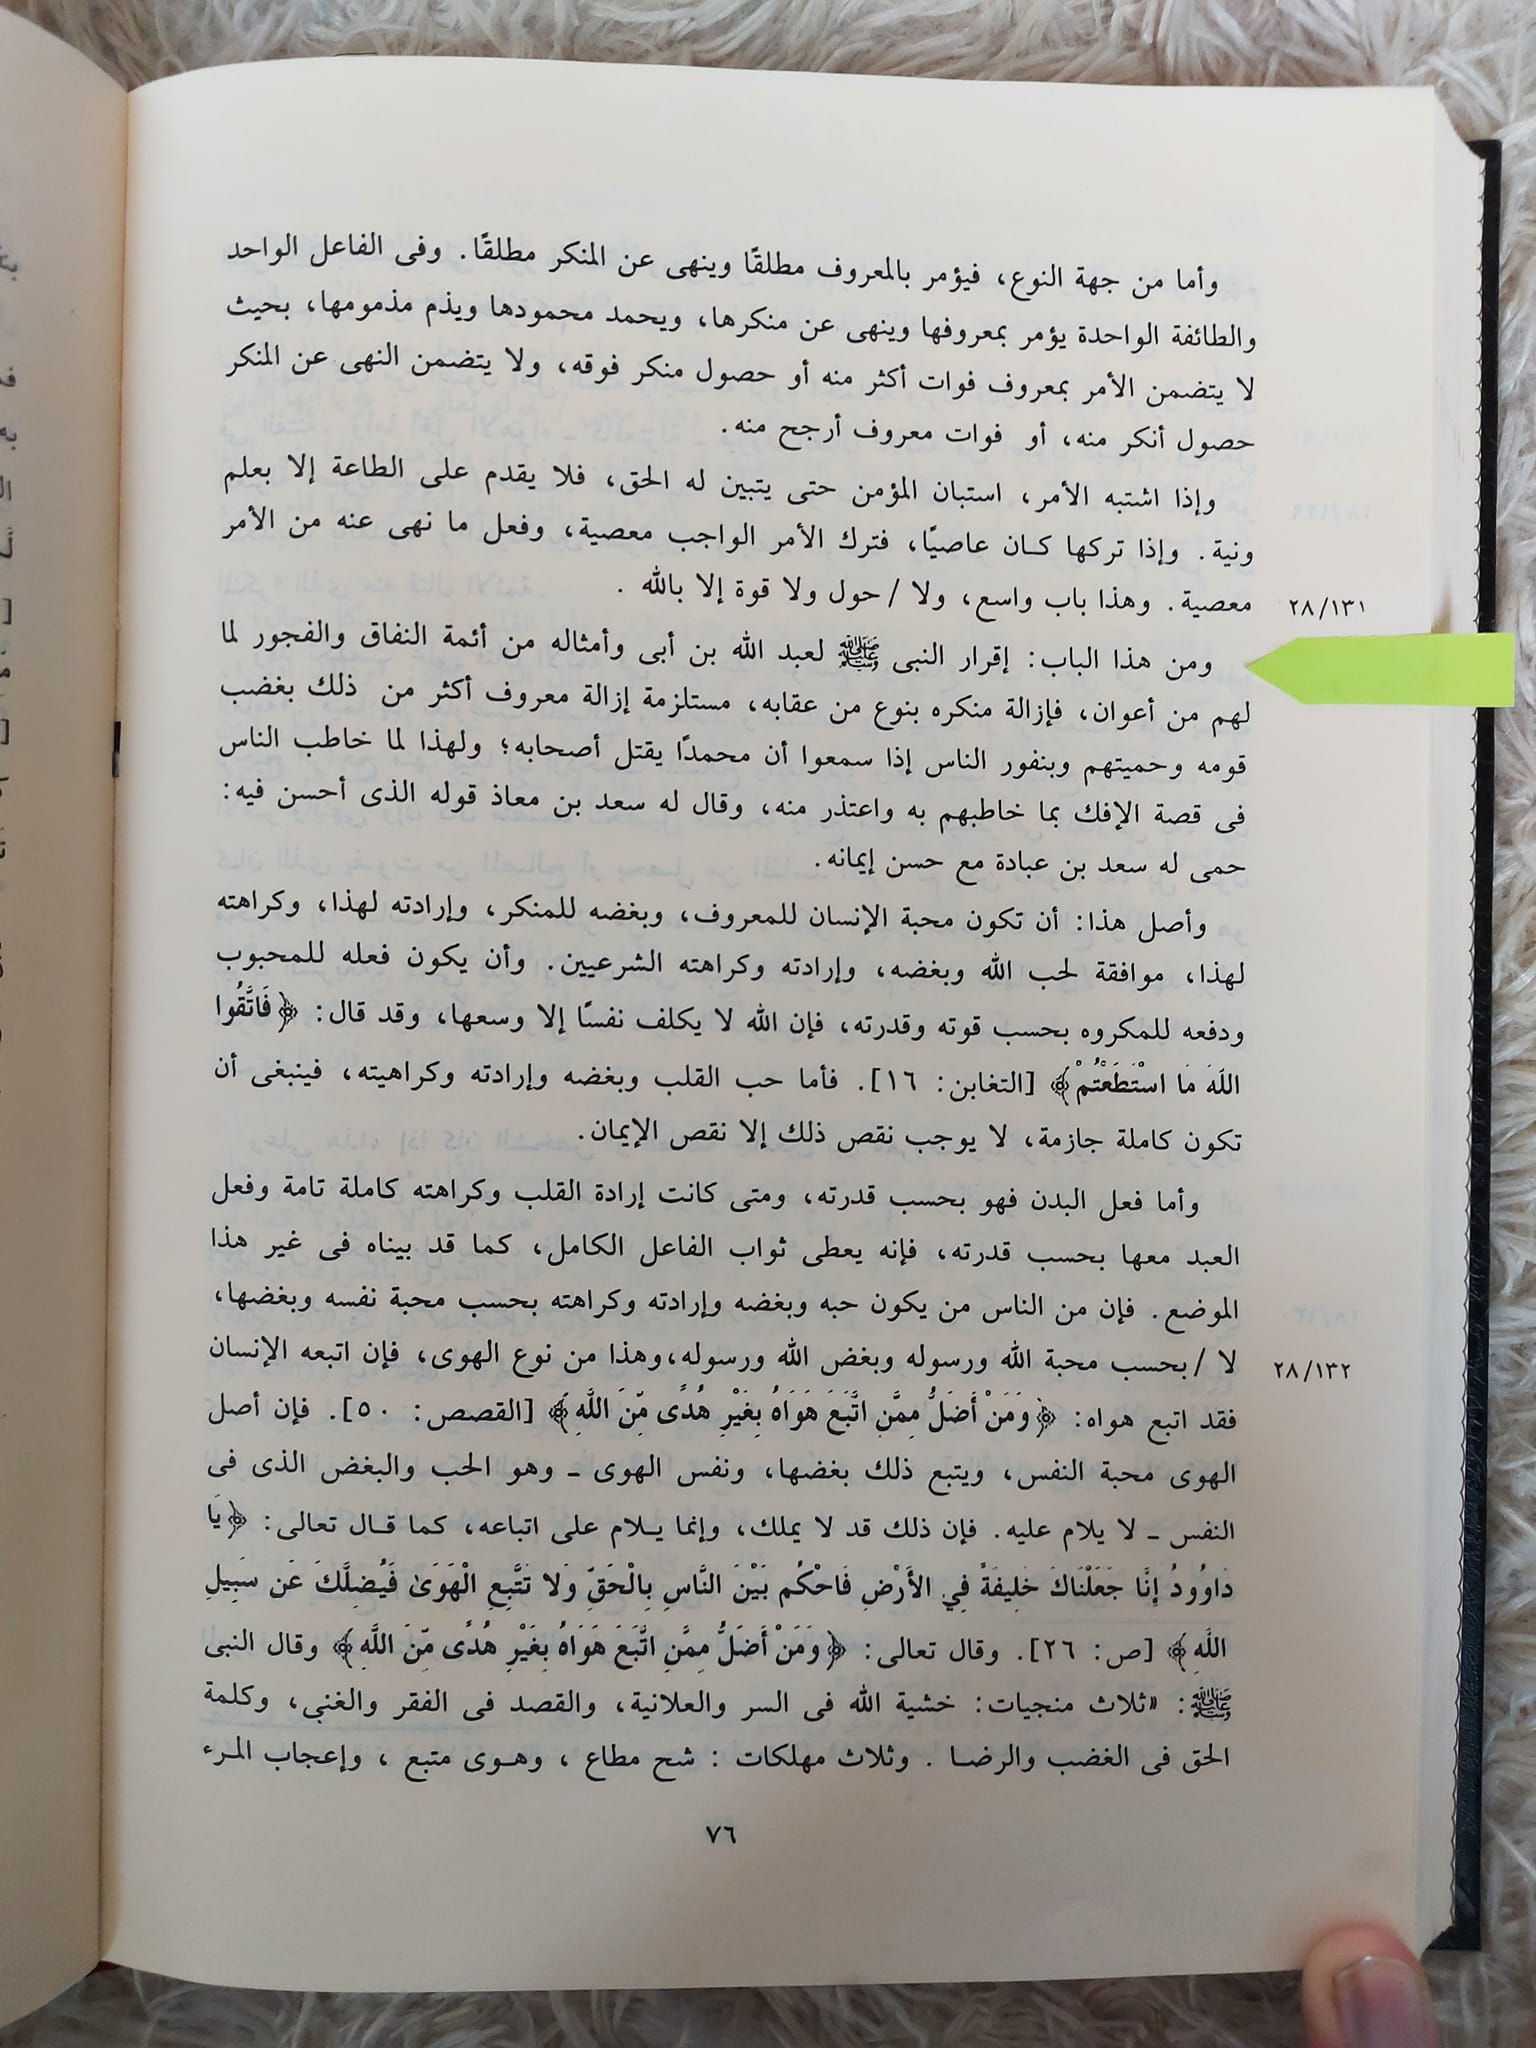 وأما من جهة النوع، فيؤمر بالمعروف مطلقًا وينهى عن المنكر مطلقًا. وفى الفاعل الواحد
والطائفة الواحدة يؤمر بمعروفها وينهى عن منكرها، ويحمد محمودها ويذم مذمومها، بحيث
لا يتضمن الأمر بمعروف فوات أكثر منه أو حصول منكر فوقه، ولا يتضمن النهى عن المنكر
حصول أنكر منه، أو فوات معروف أرجح منه.
وإذا اشتبه الأمر، استبان المؤمن حتى يتبين له الحق، فلا يقدم على الطاعة إلا بعلم
ونية. وإذا تركها كـان عاصيًا، فترك الأمر الواجب معصية، وفعل ما نهى عنه من الأمر
معصية. وهذا باب واسع، ولا / حول ولا قوة إلا بالله .
٢٨/١٣١
ومن هذا الباب: إقرار النبى ﷺ لعبد الله بن أبى وأمثاله من أئمة النفاق والفجور لما
لهم من أعوان، فإزالة منكره بنوع من عقابه، مستلزمة إزالة معروف أكثر من ذلك بغضب
قومه وحميتهم وبنفور الناس إذا سمعوا أن محمدًا يقتل أصحابه؛ ولهذا لما خاطب الناس
فى قصة الإفك بما خاطبهم به واعتذر منه، وقال له سعد بن معاذ قوله الذى أحسن فيه:
حمى له سعد بن عبادة مع حسن إيمانه.
وأصل هذا: أن تكون محبة الإنسان للمعروف، وبغضه للمنكر، وإرادته لهذا، وكراهته
لهذا، موافقة لحب الله وبغضه، وإرادته وكراهته الشرعيين. وأن يكون فعله للمحبوب
ودفعه للمكروه بحسب قوته وقدرته، فإن الله لا يكلف نفسًا إلا وسعها، وقد قال: ﴿فَاتَّقُوا
اللَّهَ مَا اسْتَطَعْتُمْ﴾ [التغابن: ١٦]. فأما حب القلب وبغضه وإرادته وكراهيته، فينبغى أن
تكون كاملة جازمة، لا يوجب نقص ذلك إلا نقص الإيمان.
وأما فعل البدن فهو بحسب قدرته، ومتى كانت إرادة القلب وكراهته كاملة تامة وفعل
العبد معها بحسب قدرته، فإنه يعطى ثواب الفاعل الكامل، كما قد بيناه فى غير هذا
الموضع. فإن من الناس من يكون حبه وبغضه وإرادته وكراهته بحسب محبة نفسه وبغضها،
لا / بحسب محبة الله ورسوله وبغض الله ورسوله،وهذا من نوع الهوى، فإن اتبعه الإنسان
٢٨/١٣٢
فقد اتبع هواه: ﴿وَمَنْ أَضَلُّ مِمَّنِ اتَّبَعَ هَوَاهُ بِغَيْرِ هُدًى مِّنَ اللَّهِ﴾ [القصص: ٥٠]. فإن أصل
الهوى محبة النفس، ويتبع ذلك بغضها، ونفس الهوى ـ وهو الحب والبغض الذى فى
النفس ـ لا يلام عليه. فإن ذلك قد لا يملك، وإنما يـلام على اتباعه، كما قـال تعالى: ﴿يَا
دَاوُودُ إِنَّا جَعَلْنَاكَ خَلِيفَةً فِي الأَرْضِ فَاحْكُم بَيْنَ النَّاسِ بِالْحَقِّ وَلا تَتَّبِعِ الْهَوَىٰ فَيُضِلَّكَ عَن سَبِيلِ
اللَّهِ﴾ [ص: ٢٦]. وقال تعالى: ﴿وَمَنْ أَضَلُّ مِمَّنِ اتَّبَعَ هَوَاهُ بِغَيْرِ هُدًى مِّنَ اللَّهِ﴾ وقال النبى
ﷺ: «ثلاث منجيات: خشية الله فى السر والعلانية، والقصد فى الفقر والغنى، وكلمة
الحق فى الغضب والرضـا . وثلاث مهلكات : شح مطاع ، وهـوى متبع ، وإعجاب المـرء
٧٦